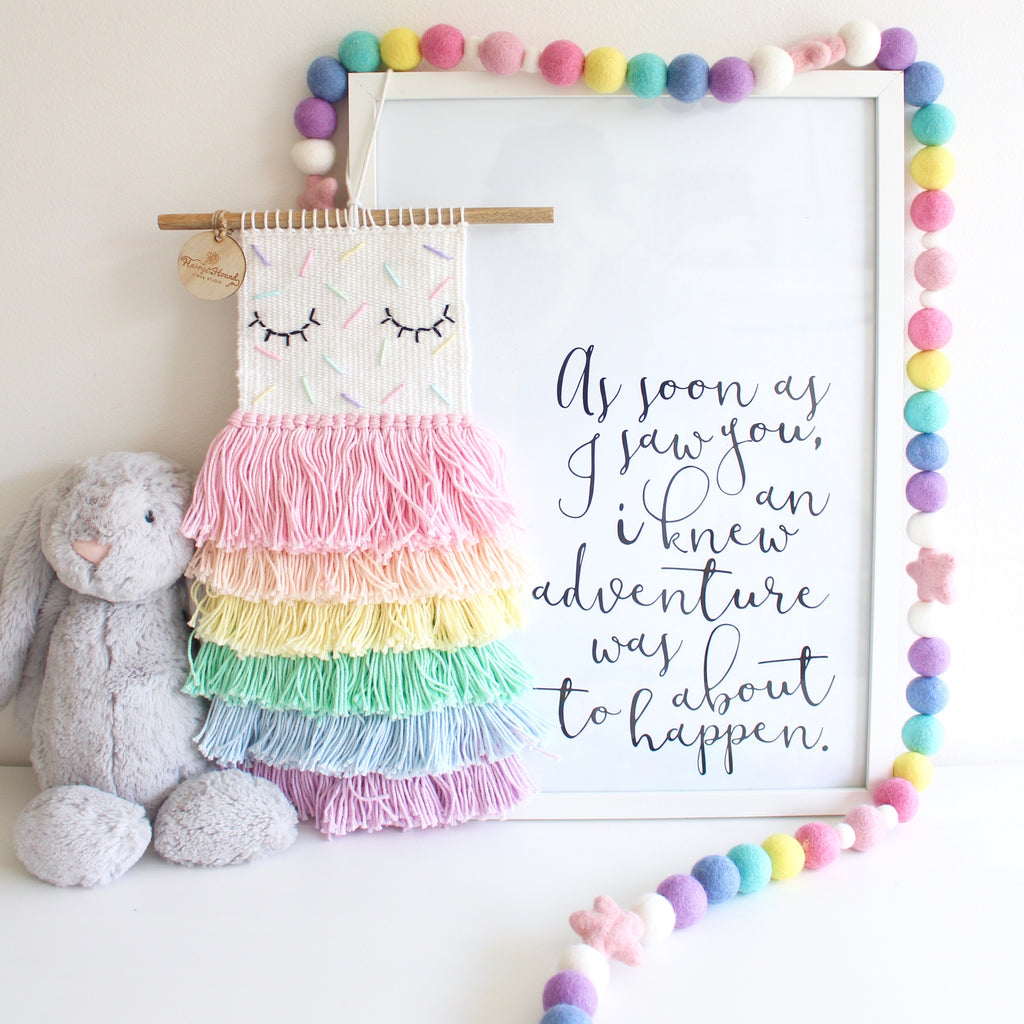 Harry & Hound
As soon as
I saw you,
i knew an
adventure
was about
to happen.